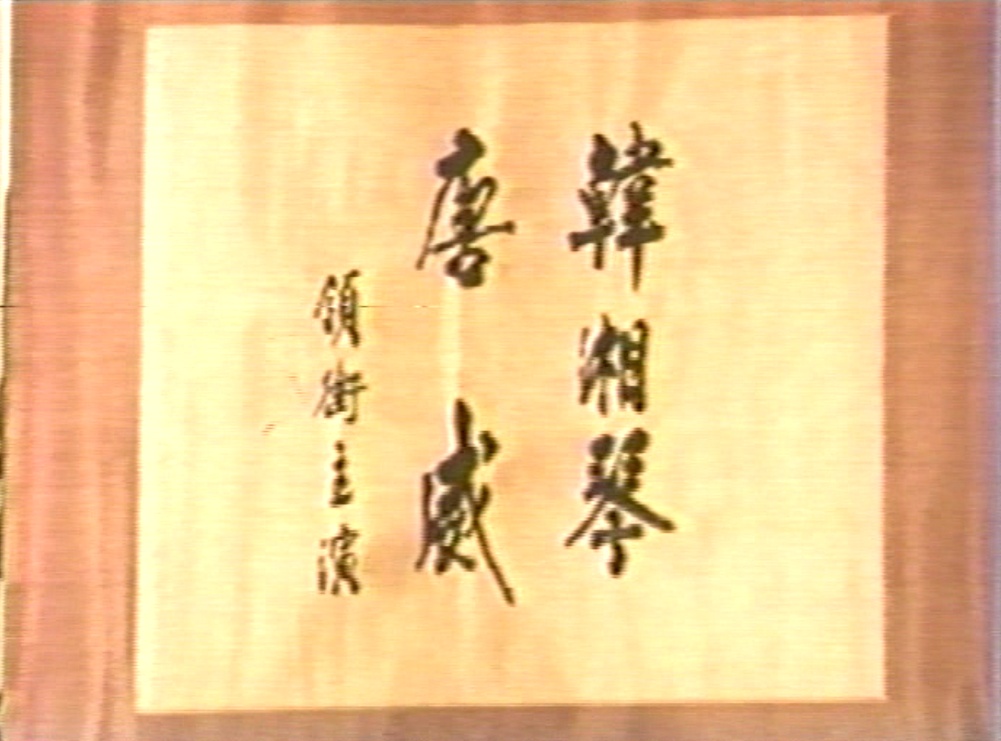 韓湘琴
唐威
領銜主演